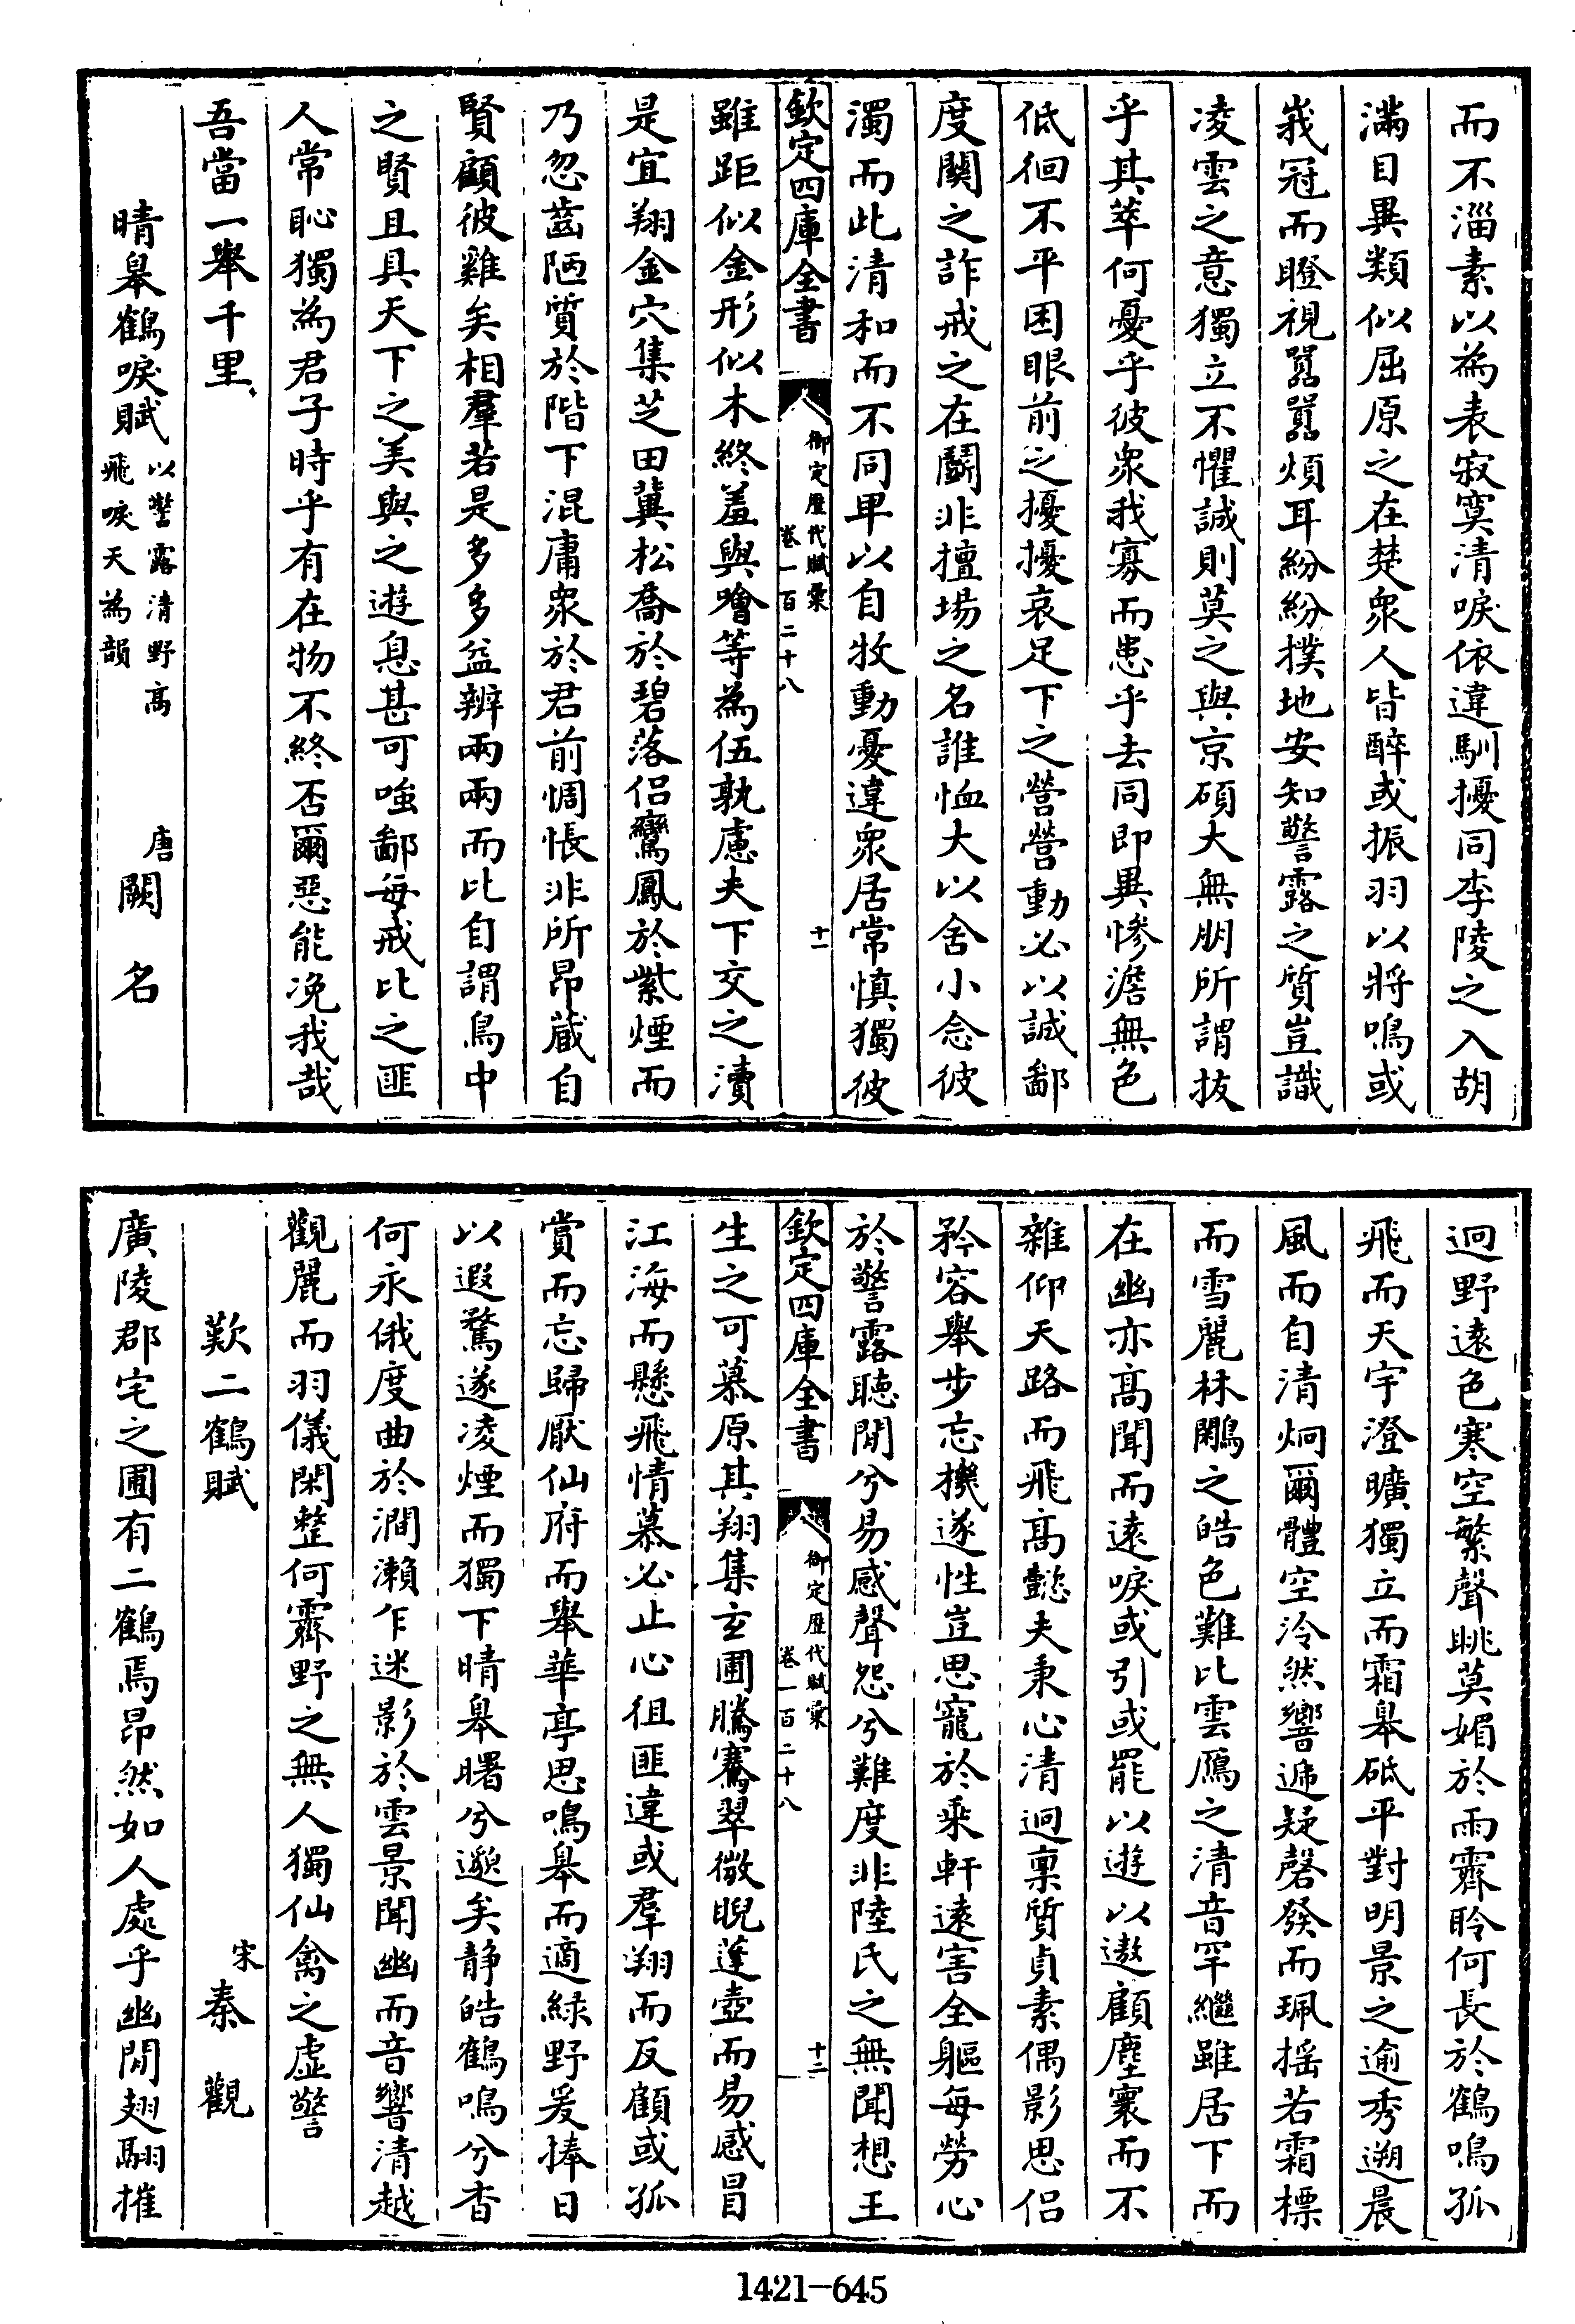 而不淄素以為表寂寞清唳依違馴擾同李陵之入胡
滿目異類似屈原之在楚衆人皆醉或振羽以將鳴或
峩冠而瞪視囂囂煩耳紛紛撲地安知警露之質豈識
凌雲之意獨立不懼誠則莫之與京碩大無朋所謂拔
乎其萃何憂乎彼衆我寡而患乎去同即異慘澹無色
低徊不平困眼前之擾擾哀足下之營營動必以誠鄙
度関之詐戒之在鬭非擅塲之名誰恤大以舍小念彼
濁而此清和而不同卑以自牧動憂違衆居常慎獨彼
欽定四庫全書
御定歷代賦彙
卷一百二十八
十一
雖距似金形似木終羞與噲等為伍孰慮夫下交之瀆
是宜翔金穴集芝田冀松喬於碧落侣鸞鳳於紫煙而
乃忽齒陋質於階下混庸衆於君前惆悵非所昂藏自
賢顧彼雞矣相羣若是多多益辨兩兩而比自謂鳥中
之賢且具天下之美與之遊息甚可嗤鄙每戒比之匪
人常恥獨為君子時乎有在物不終否爾惡能浼我哉
吾當一舉千里
晴臯鶴唳賦 以警露清野高
飛唳天為韻
唐 闕名
迥野遠色寒空繁聲眺莫媚於雨霽聆何長於鶴鳴孤
飛而天宇澄曠獨立而霜臯砥平對明景之逾秀遡晨
風而自清炯爾體空泠然響遞疑磬發而珮摇若霜標
而雪麗林鷴之皓色難比雲鴈之清音罕繼雖居下而
在幽亦高聞而遠唳或引或罷以遊以遨顧塵寰而不
雜仰天路而飛高懿夫秉心清迥稟質貞素偶影思侣
矜容舉步忘機遂性豈思寵於乘軒遠害全軀每勞心
於警露聽閒兮易感聲怨兮難度非陸氏之無聞想王
欽定四庫全書
御定歷代賦彙
卷一百二十八
十二
生之可慕原其翔集玄圃騰騫翠微睨蓬壺而易感冒
江海而懸飛情慕必止心徂匪違或羣翔而反顧或孤
賞而忘歸厭仙府而舉華亭思鳴臯而適緑野爰捧日
以遐騖遂凌煙而獨下晴臯曙兮邈矣静皓鶴鳴兮杳
何永俄度曲於澗瀨乍迷影於雲景聞幽而音響清越
觀麗而羽儀閑整何霽野之無人獨仙禽之虚警
歎二鶴賦
宋 秦觀
廣陵郡宅之圃有二鶴焉昂然如人處乎幽閒翅翮摧
1421-645